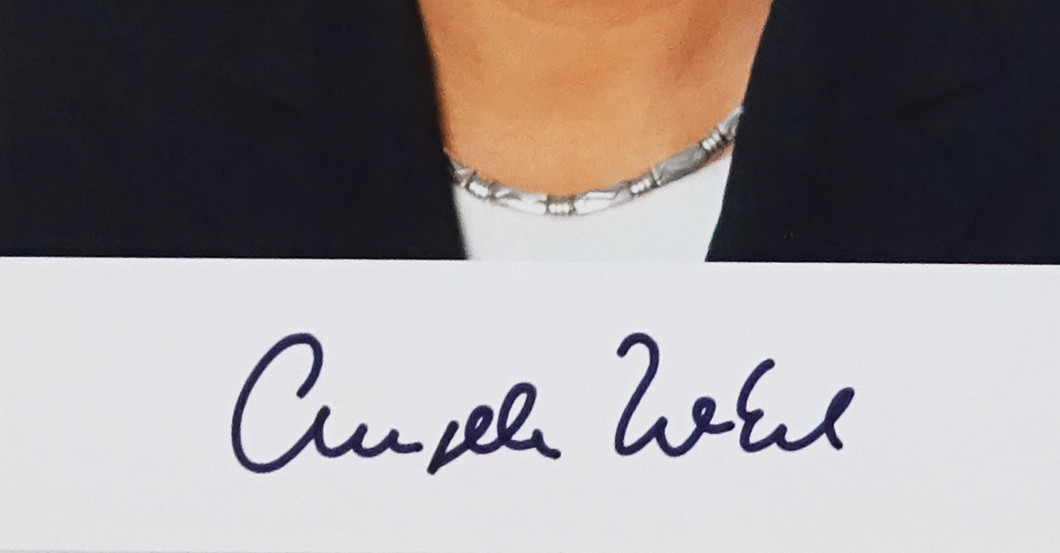 Angela Merkel